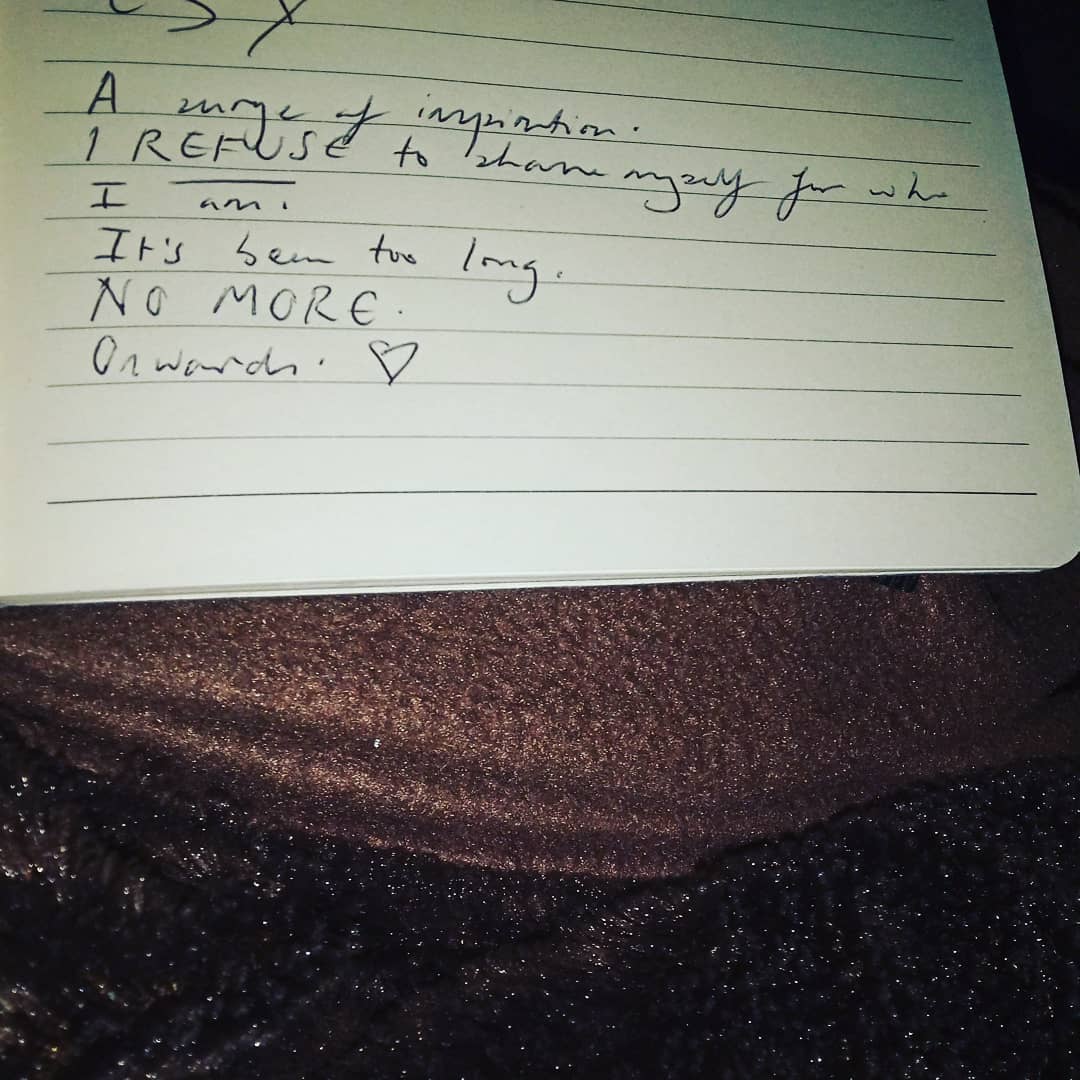 A surge of inspiration.
I REFUSE to shame myself for who
I am.
It's been too long.
NO MORE.
Onwards. ♡